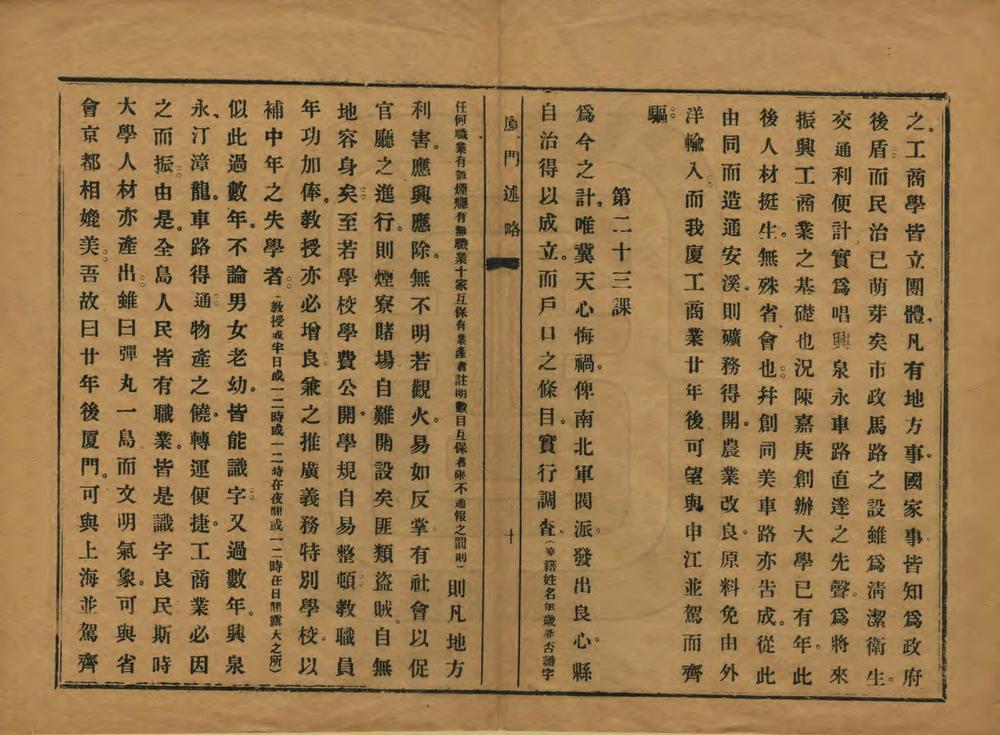 之工商學皆立團體凡有地方事國家事皆知爲政府
後盾而民治已萌芽矣市政馬路之設雖爲清潔衛生
交通利便計實爲唱興泉永車路直達之先聲爲將來
振興工商業之基礎也況陳嘉庚創辦大學已有年此
後人材挺生無殊省會也幷創同美車路亦吿成從此
由同而造通安溪則礦務得開農業改良原料免由外
洋輸入而我廈工商業廿年後可望與申江並駕而齊
驅
第二十三課
爲今之計唯冀天心悔禍俾南北軍閥派發出良心縣
自治得以成立而戶口之條目實行調查(籍姓名年歲並否識字
廈門述略
十
任何職業有無煙癮有無職業十家互保有業產者註明數目互保者眾不通報之罰則)則凡地方
利害應興應除無不明若觀火易如反掌有社會以促
官廳之進行則煙寮賭場自難開設矣匪類盜賊自無
地容身矣至若學校學費公開學規自易整頓教職員
年功加俸教授亦必增良兼之推廣義務特別學校以
補中年之失學者(教授或半日或一二時或一二時在夜間或一二時在日間露天之所)
似此過數年不論男女老幼皆能識字又過數年興泉
永汀漳龍車路得通物產之饒轉運便捷工商業必因
之而振由是全島人民皆有職業皆是識字良民斯時
大學人材亦產出雖曰彈丸一島而文明氣象可與省
會京都相媲美吾故曰廿年後厦門可與上海並駕齊